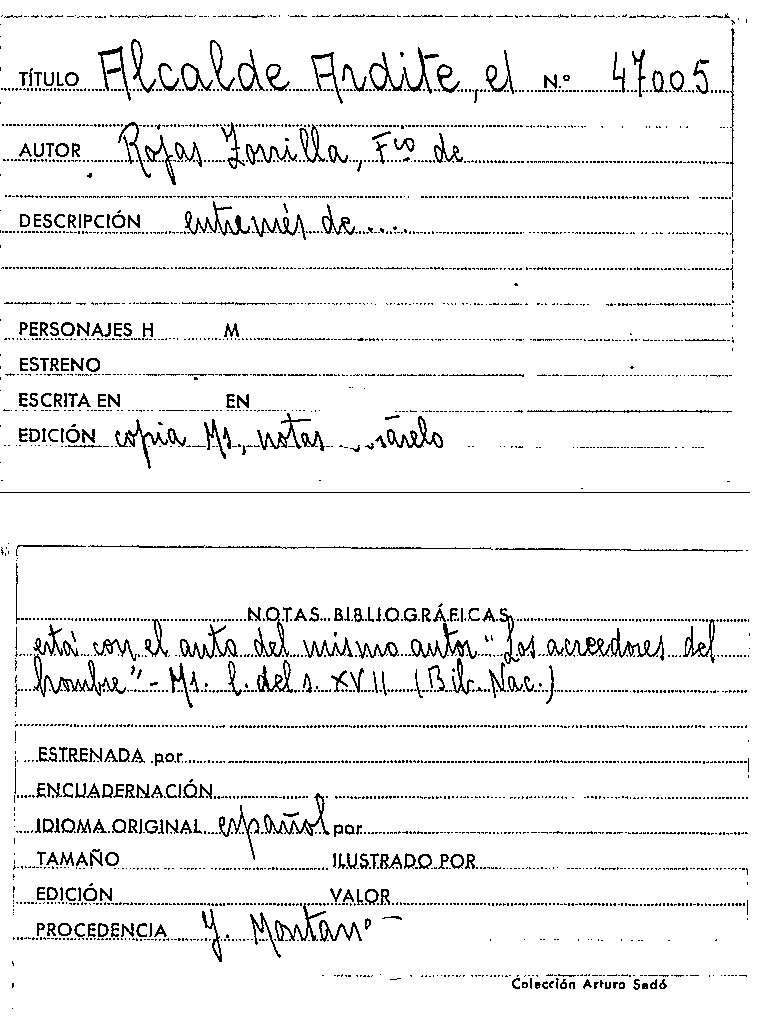 TÍTULO Alcalde Ardite, el N.º 47005
AUTOR Rojas Zorrilla, Fco de
DESCRIPCIÓN entremés de....
PERSONAJES H M
ESTRENO
ESCRITA EN EN
EDICIÓN copia Ms, notas
NOTAS BIBLIOGRÁFICAS
está con el auto del mismo autor "Los acreedores del
hombre" - Ms. l. del s. XVII (Bib. Nac.)
ESTRENADA por
ENCUADERNACIÓN
IDIOMA ORIGINAL español por
TAMAÑO ILUSTRADO POR
EDICIÓN VALOR
PROCEDENCIA Y. Montano
Colección Arturo Sedó